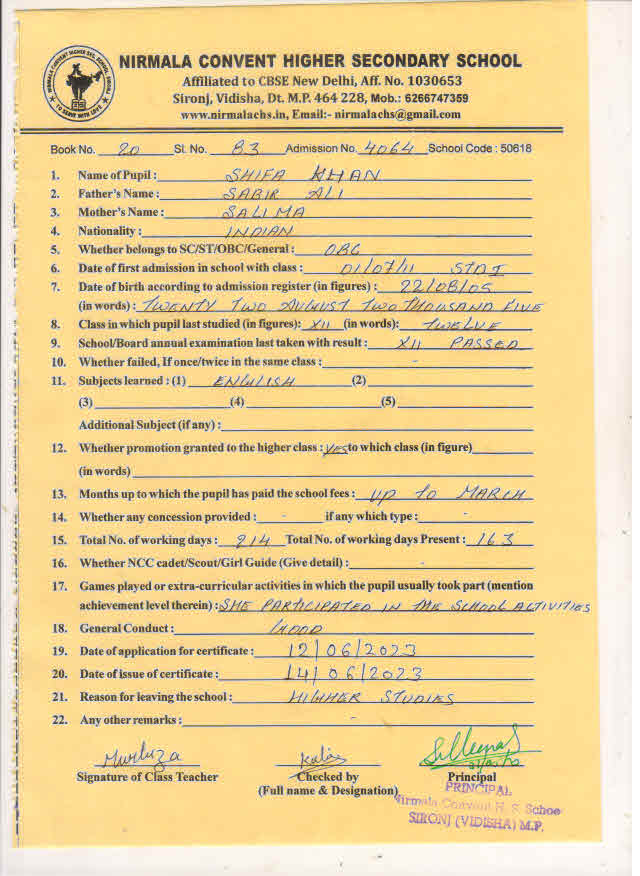 NIRMALA CONVENT HIGHER SECONDARY SCHOOL
Affiliated to CBSE New Delhi, Aff. No. 1030653
Sironj, Vidisha, Dt. M.P. 464 228, Mob.: 6266747359
www.nirmalachs.in, Email:- nirmalachs@gmail.com
NIRMALA CONVENT HIGHER SEC. SCHOOL, SIRONJ
TO SERVE WITH LOVE
Book No. 20 Sl. No. 83 Admission No. 4064 School Code : 50618
1. Name of Pupil : SHIFA KHAN
2. Father's Name : SABIR ALI
3. Mother's Name : SALIMA
4. Nationality : INDIAN
5. Whether belongs to SC/ST/OBC/General : OBC
6. Date of first admission in school with class : 01/07/11 STD I
7. Date of birth according to admission register (in figures) : 22/08/05
(in words) : TWENTY TWO AUGUST TWO THOUSAND FIVE
8. Class in which pupil last studied (in figures): XII (in words): TWELVE
9. School/Board annual examination last taken with result : XII PASSED
10. Whether failed, If once/twice in the same class : -
11. Subjects learned : (1) ENGLISH (2)
(3) (4) (5)
Additional Subject (if any) :
12. Whether promotion granted to the higher class : YES to which class (in figure)
(in words)
13. Months up to which the pupil has paid the school fees : UP TO MARCH
14. Whether any concession provided : - if any which type : -
15. Total No. of working days : 214 Total No. of working days Present : 163
16. Whether NCC cadet/Scout/Girl Guide (Give detail) : -
17. Games played or extra-curricular activities in which the pupil usually took part (mention
achievement level therein) : SHE PARTICIPATED IN THE SCHOOL ACTIVITIES
18. General Conduct : GOOD
19. Date of application for certificate : 12/06/2023
20. Date of issue of certificate : 14/06/2023
21. Reason for leaving the school : HIGHER STUDIES
22. Any other remarks : -
Signature of Class Teacher Checked by Principal
(Full name & Designation)
PRINCIPAL
Nirmala Convent H. S. Schoo
SIRONJ (VIDISHA) M.P.